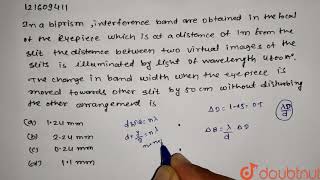 121609411
In a biprism, interference band are obtained in the focal
of the Eyepiece which is at a distance of 1m from the
slit the distance between two virtual images of the
slits is illuminated by light of wavelength
The change in band width when the eyepiece is
moved towards other slit by 50 cm without disturbing
the other arrangement is
(a) 1.24 mm
(b) 2.24 mm
(c) 0.24 mm
(d) 1.1 mm
λD
d
doubtnut